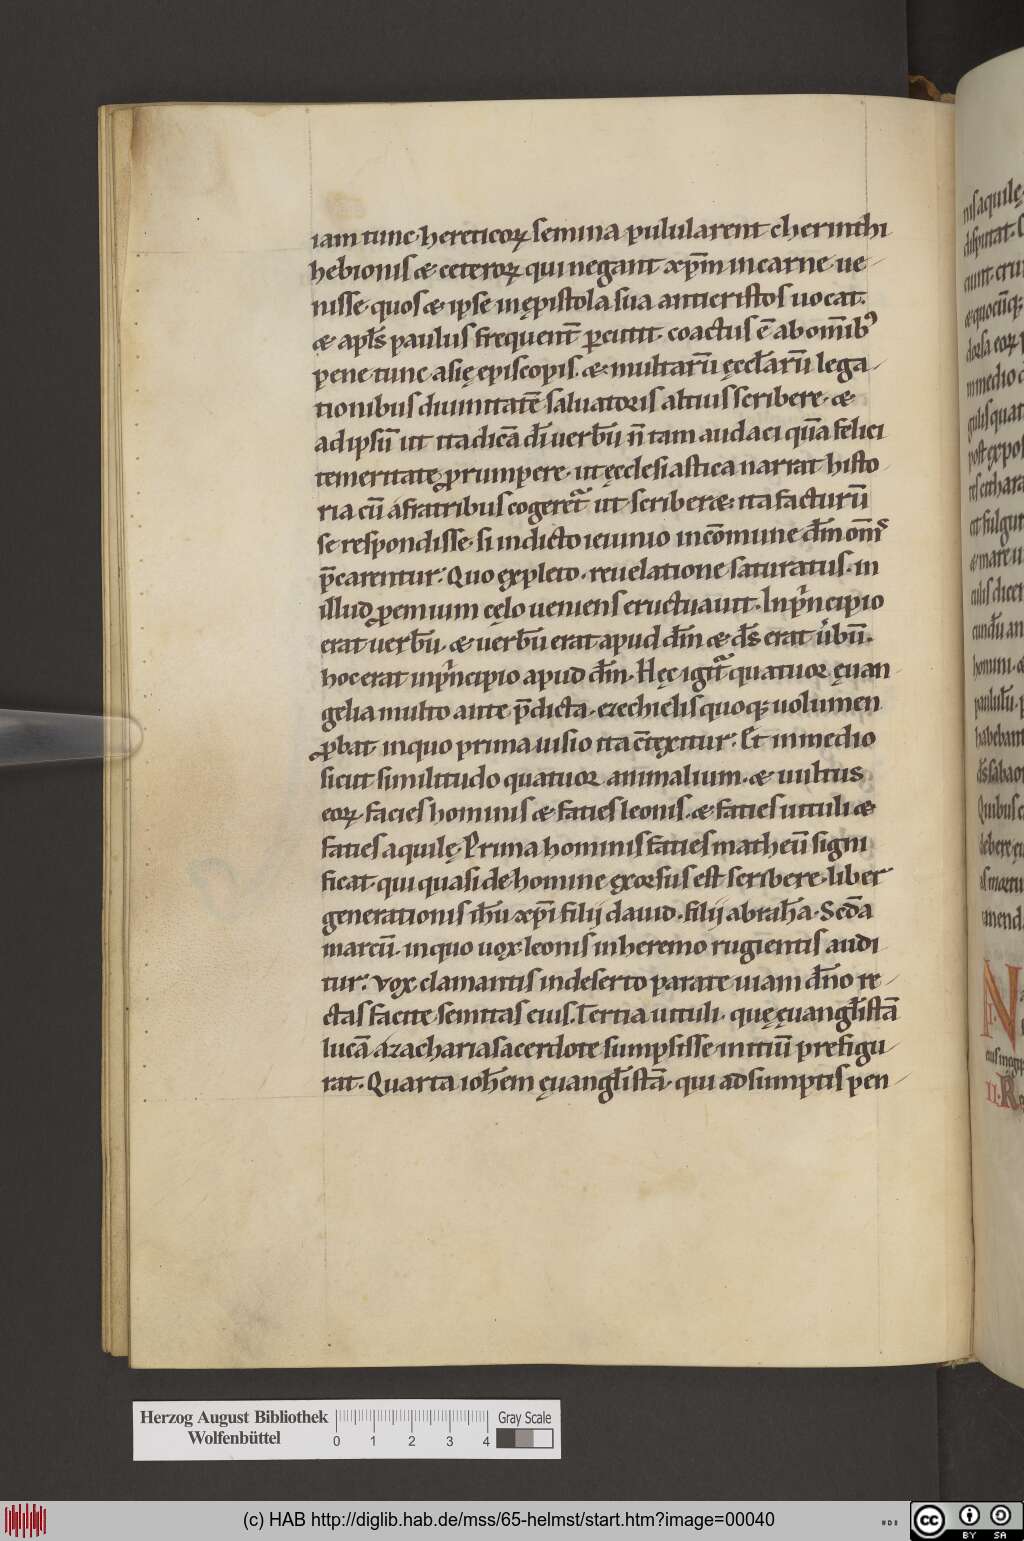 iam tunc· hereticoꝝ semina pulularent cherinthi
hebionis & ceteroꝝ qui negant xp̄m in carne ue
nisse· quos & ipse in ępistola sua anticristos uocat.
& apl̄s paulus frequent̄ ꝑcutit· coactus ē ab om̄ib᾽
pene tunc asię episcopis· & multarū ęccl̄arū lega
tionibus diuinitatē saluatoris altius scribere· &
ad ipsū ut ita dicā dī uerbū n̄ tam audaci quā felici
temeritate ꝓrumpere· ut ęcclesiastica narrat histo
ria cū a fratribus cogeret᷑ ut scriber&· ita facturū
se respondisse· si indicto ieiunio in cōmune dm̄ om̄s
p̄carentur· Quo ęxpleto· reuelatione saturatus· in
illud ꝓemium cęlo ueniens eructuauit· In pͥncipio
erat uerbū· & uerbū erat apud dm̄ & ds̄ erat u̓bū·
hoc erat in pͥncipio apud dm̄· Hęc igit᷑ quatuor ęuan
gelia multo ante p̄dicta· ezechielis quoq; uolumen
ꝓbat· in quo prima uisio ita c̄tęxitur· Et in medio
sicut similitudo quatuor animalium· & uultus
eoꝝ· facies hominis & faties leonis· & faties uituli &
faties aquilę· Prima hominis faties matheū signi
ficat· qui quasi de homine ęxorsus est scribere· liber
generationis ih̄u xp̄i filij dauid· filij abrah̄a· Sc̄da
marcū· in quo uox leonis in heremo rugientis audi
tur· vox clamantis in deserto parate uiam dn̄o re
ctas facite semitas eius. Tertia uituli· quę ęuangl̄istā
lucā a zacharia sacerdote sumpsisse initiū prefigu
rat· Quarta ioh̄em ęuangl̄istā· qui adsumptis pen
Herzog August Bibliothek
Wolfenbüttel
0 1 2 3 4
Gray Scale
(c) HAB http://diglib.hab.de/mss/65-helmst/start.htm?image=00040
cc BY SA